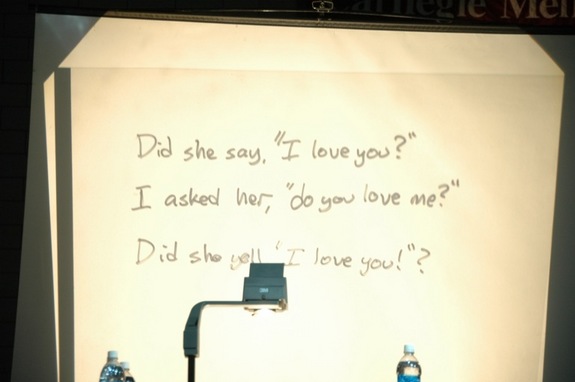 Carnegie Mel
Did she say, "I love you?"
I asked her, "do you love me?"
Did she yell "I love you!"?